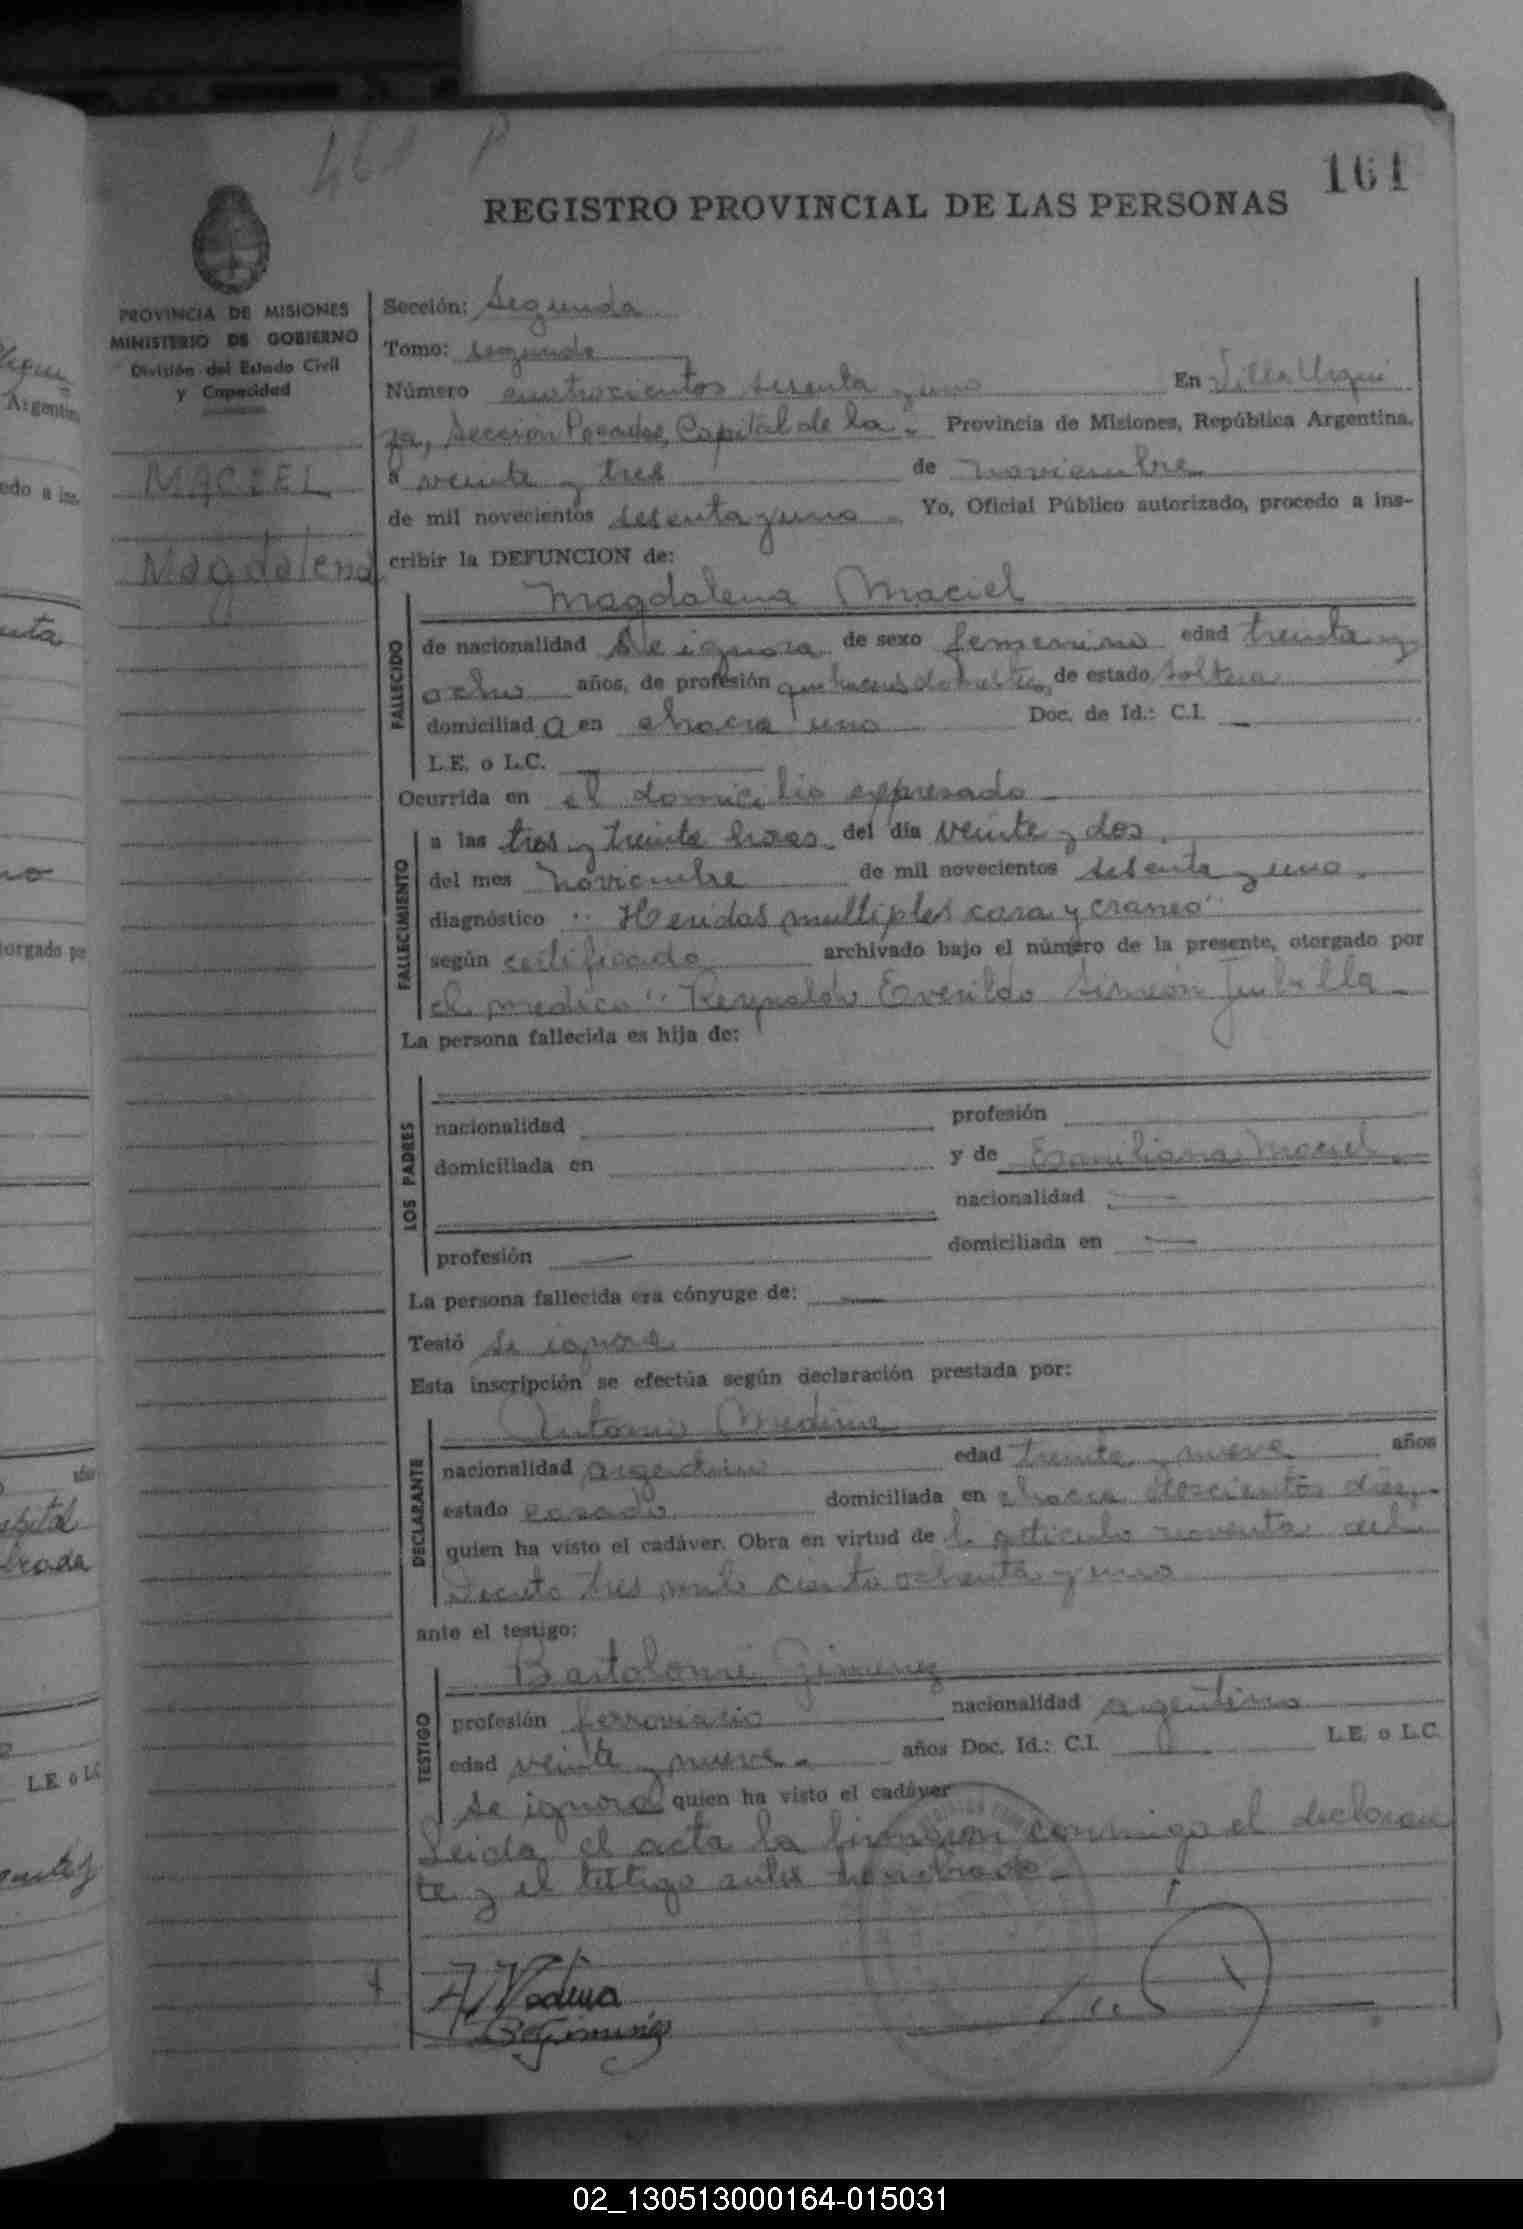 461 P
161
REGISTRO PROVINCIAL DE LAS PERSONAS
PROVINCIA DE MISIONES
MINISTERIO DE GOBIERNO
División del Estado Civil
y Capacidad
MACIEL
Magdalena
Sección: Segunda
Tomo: segundo
Número cuatrocientos sesenta y uno En Villa Urqui
za, Sección Posadas, Capital de la Provincia de Misiones, República Argentina,
a veinte y tres de noviembre
de mil novecientos sesenta y uno Yo, Oficial Público autorizado, procedo a ins-
cribir la DEFUNCION de:
Magdalena Maciel
FALLECIDO
de nacionalidad se ignora de sexo femenino edad treinta y
ocho años, de profesión quehaceres domesticos, de estado soltera
domiciliad a en chacra uno Doc. de Id.: C.I. —
L.E. o L.C.
Ocurrida en el domicilio expresado
FALLECIMIENTO
a las tres y treinta horas del día veinte y dos
del mes noviembre de mil novecientos sesenta y uno
diagnóstico "Heridas multiples cara y craneo"
según certificado archivado bajo el número de la presente, otorgado por
el medico "Reynaldo Everildo Simeón
La persona fallecida es hija de:
LOS PADRES
nacionalidad profesión
domiciliada en y de Maciel
nacionalidad —
profesión — domiciliada en —
La persona fallecida era cónyuge de: —
Testó se ignora
Esta inscripción se efectúa según declaración prestada por:
Antonio Medina
DECLARANTE
nacionalidad argentino edad treinta y nueve años
estado casado domiciliada en chacra doscientos diez
quien ha visto el cadáver. Obra en virtud de l articulo noventa del
Decreto tres mil ciento ochenta y uno
ante el testigo:
Bartolomé Gimenez
TESTIGO
profesión ferroviario nacionalidad argentino
edad veinte y nueve años Doc. Id.: C.I. L.E. o L.C.
se ignora quien ha visto el cadáver
Leida el acta la firmaron conmigo el declaran
te y el testigo antes nombrado
A Medina
B Gimenez
02_130513000164-015031